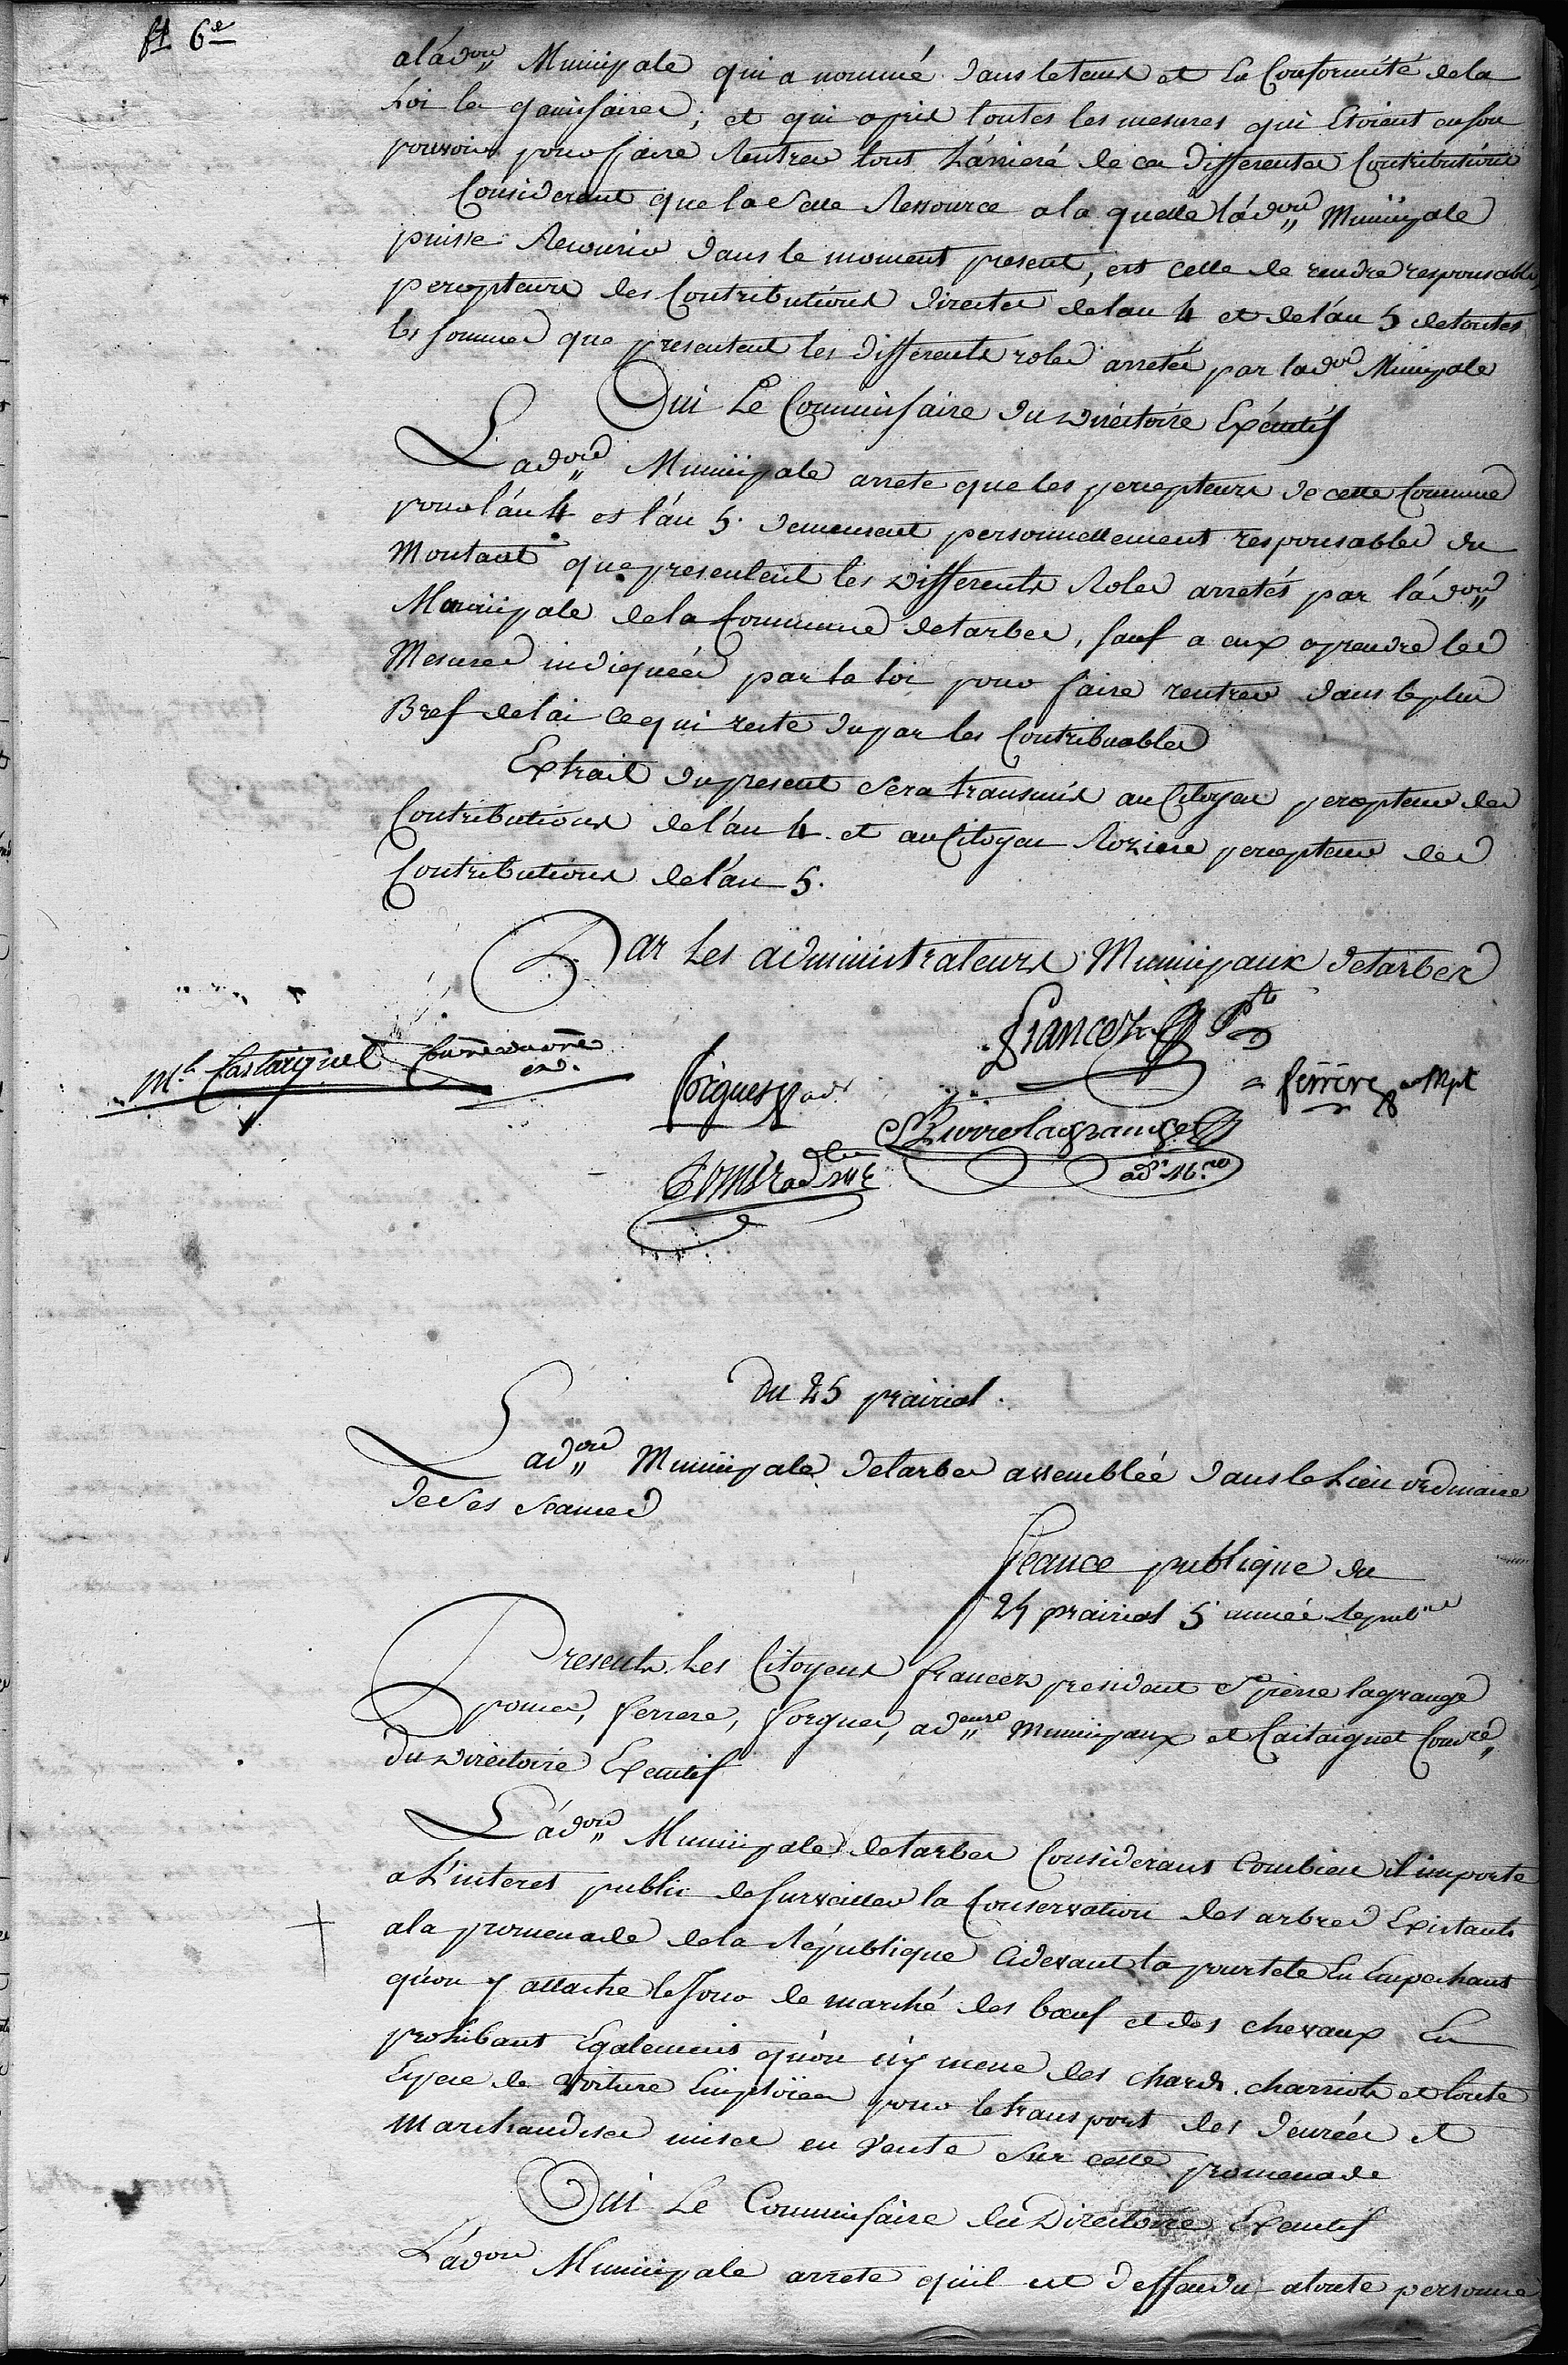 ft 6e
a l'adon Municipale qui a nommé dans le tems et la Conformité de la
Loi les garnisaires; et qui a pris toutes les mesures qui Etoient en son
pouvoir pour faire Rentrer tout L'arrieré de ces differentes Contributions
Considerant que la Seule Ressource a la quelle l'adon Municipale
puisse Recourir dans le moment présent, est celle de rendre responsables
percepteurs des Contributions directes de l'an 4 et de l'an 5 de toutes
les sommes que presentent les differents roles arretés par l'adon Municipale
Oui Le Commissaire du Directoire Exécutif
L'adon Municipale arrete que les percepteurs de cette Commune
pour l'an 4 et l'an 5. demeurent personnellement responsables du
Montant que presentent les differents Roles arretés par l'adon
Municipale de la Commune de tarbes, sauf a eux a prendre les
Mesures indiquées par la loi pour faire rentrer dans le plus
Bref delai ce qui reste du par les Contribuables
Extrait du present Sera transmis au Citoyen percepteur des
Contributions de l'an 4. et au Citoyen Roziere percepteur des
Contributions de l'an 5.
Par Les administrateurs Municipaux de tarbes
francez Pt
Mel Castaignet
forgues ad
ferrere ad Mpl
St Pierre lagrange
adr M.
pomez ad
Du 25 prairial.
L'adon Municipale de tarbes assemblée dans le Lieu ordinaire
de Ses Seances
Seance publique du
25 prairial 5e année Repubne
Presents Les Citoyens francez president St pierre lagrange
pomes, ferrere, forgues, adeurs Municipaux et Castaignet Comre
du Directoire Executif
L'adon Municipale de tarbes Considerant Combien il importe
a L'interet public de Surveiller la Conservation des arbres Existants
a la promenade de la République Cidevant la pourtete En Empechant
qu'on y attache le Jour de marché des bœuf et des chevaux En
prohibant Egalement qu'on n'y mene des chars, charriots et toute
Espece de Voiture Emploïées pour le transport des denrées et
Marchandises mises en Vente Sur cette promenade
Oui Le Commissaire du Directoire Executif
L'adon Municipale arrete qu'il est deffandu a toute personne